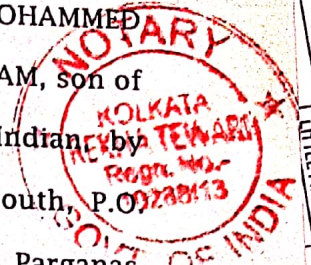 OHAMMED
AM, son of
Indian, by
outh, P.O.
Parganas
NOTARY
KOLKATA
REKHA TEWARI
Regn. No.-
GOVT. OF INDIA